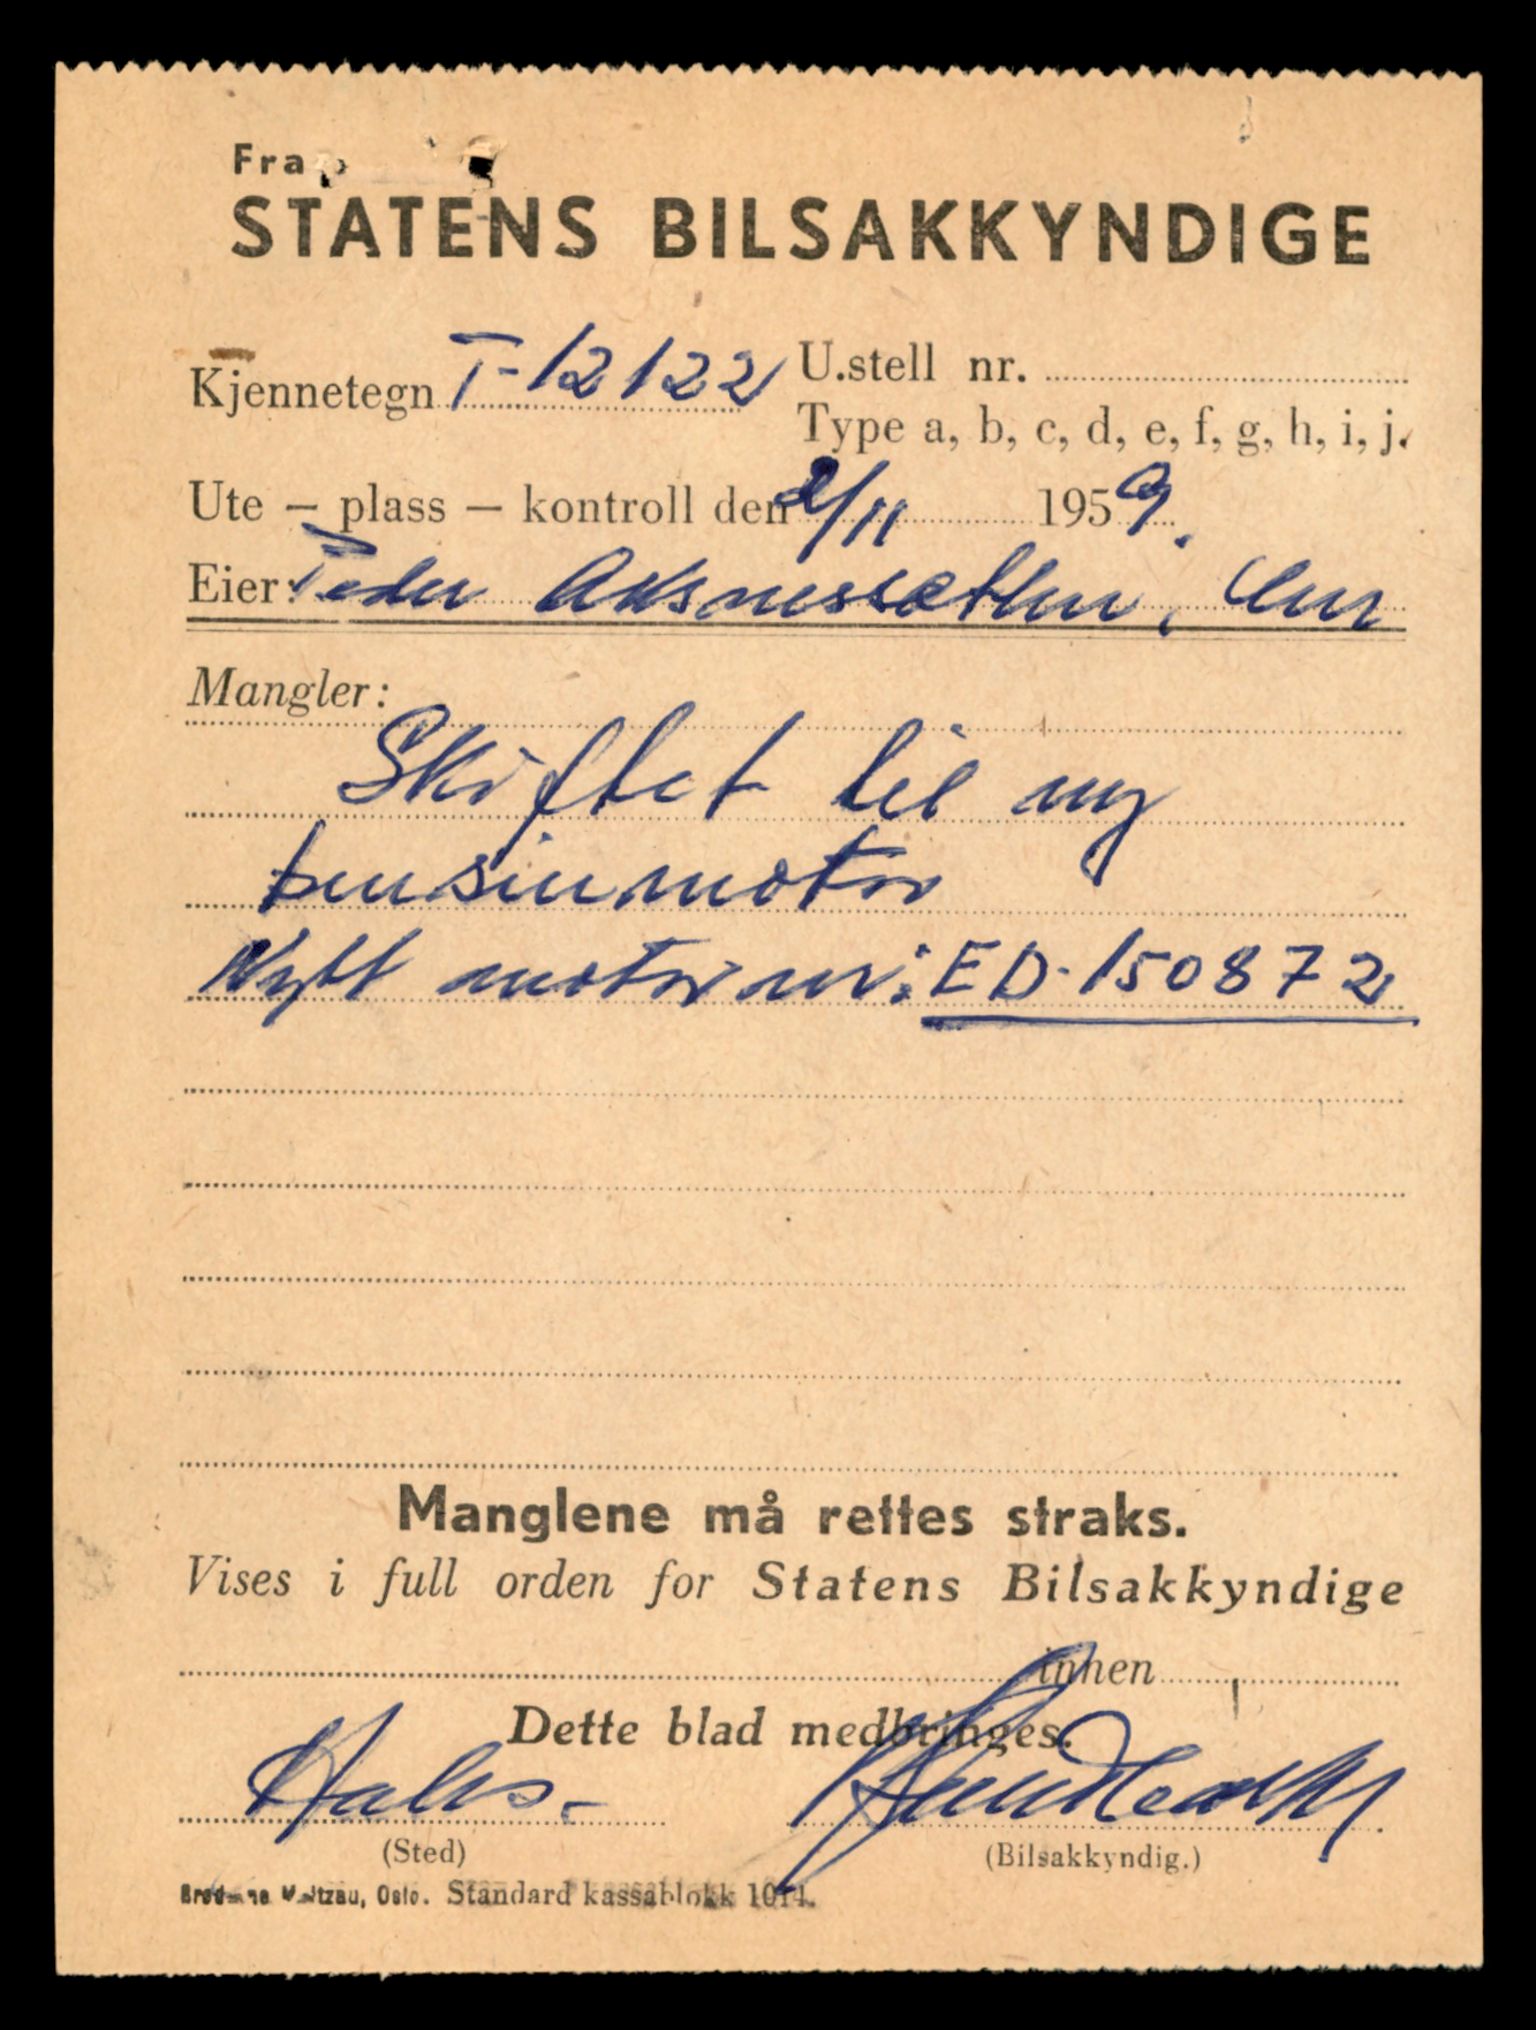 Fra
STATENS BILSAKKYNDIGE
Kjennetegn T-12122 U.stell nr.
Type a, b, c, d, e, f, g, h, i, j.
Ute — plass — kontroll den 2/11 1959.
Eier: Peder Aksnessæther,
Mangler:
Skiftet til ny
bensinmotor
Nytt motor nr: ED-150872
Manglene må rettes straks.
Vises i full orden for Statens Bilsakkyndige
innen
Dette blad medbringes.
(Sted)
(Bilsakkyndig.)
Oslo. Standard kassablokk 1014.